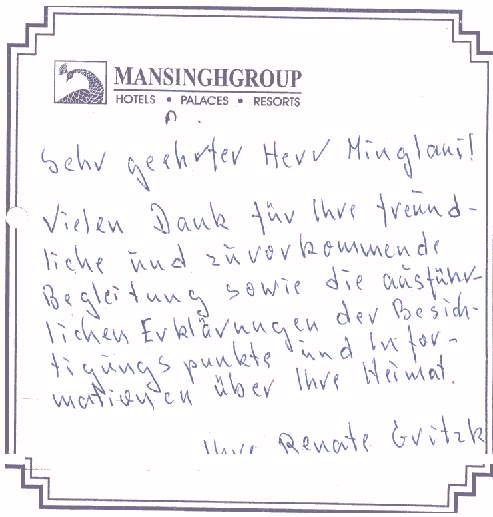 MANSINGHGROUP
HOTELS • PALACES • RESORTS
Sehr geehrter Herr Minglani!
Vielen Dank für Ihre freund-
liche und zuvorkommende
Begleitung sowie die ausführ-
lichen Erklärungen der Besich-
tigungspunkte und Infor-
mationen über Ihre Heimat.
Ihre Renate Gritzk